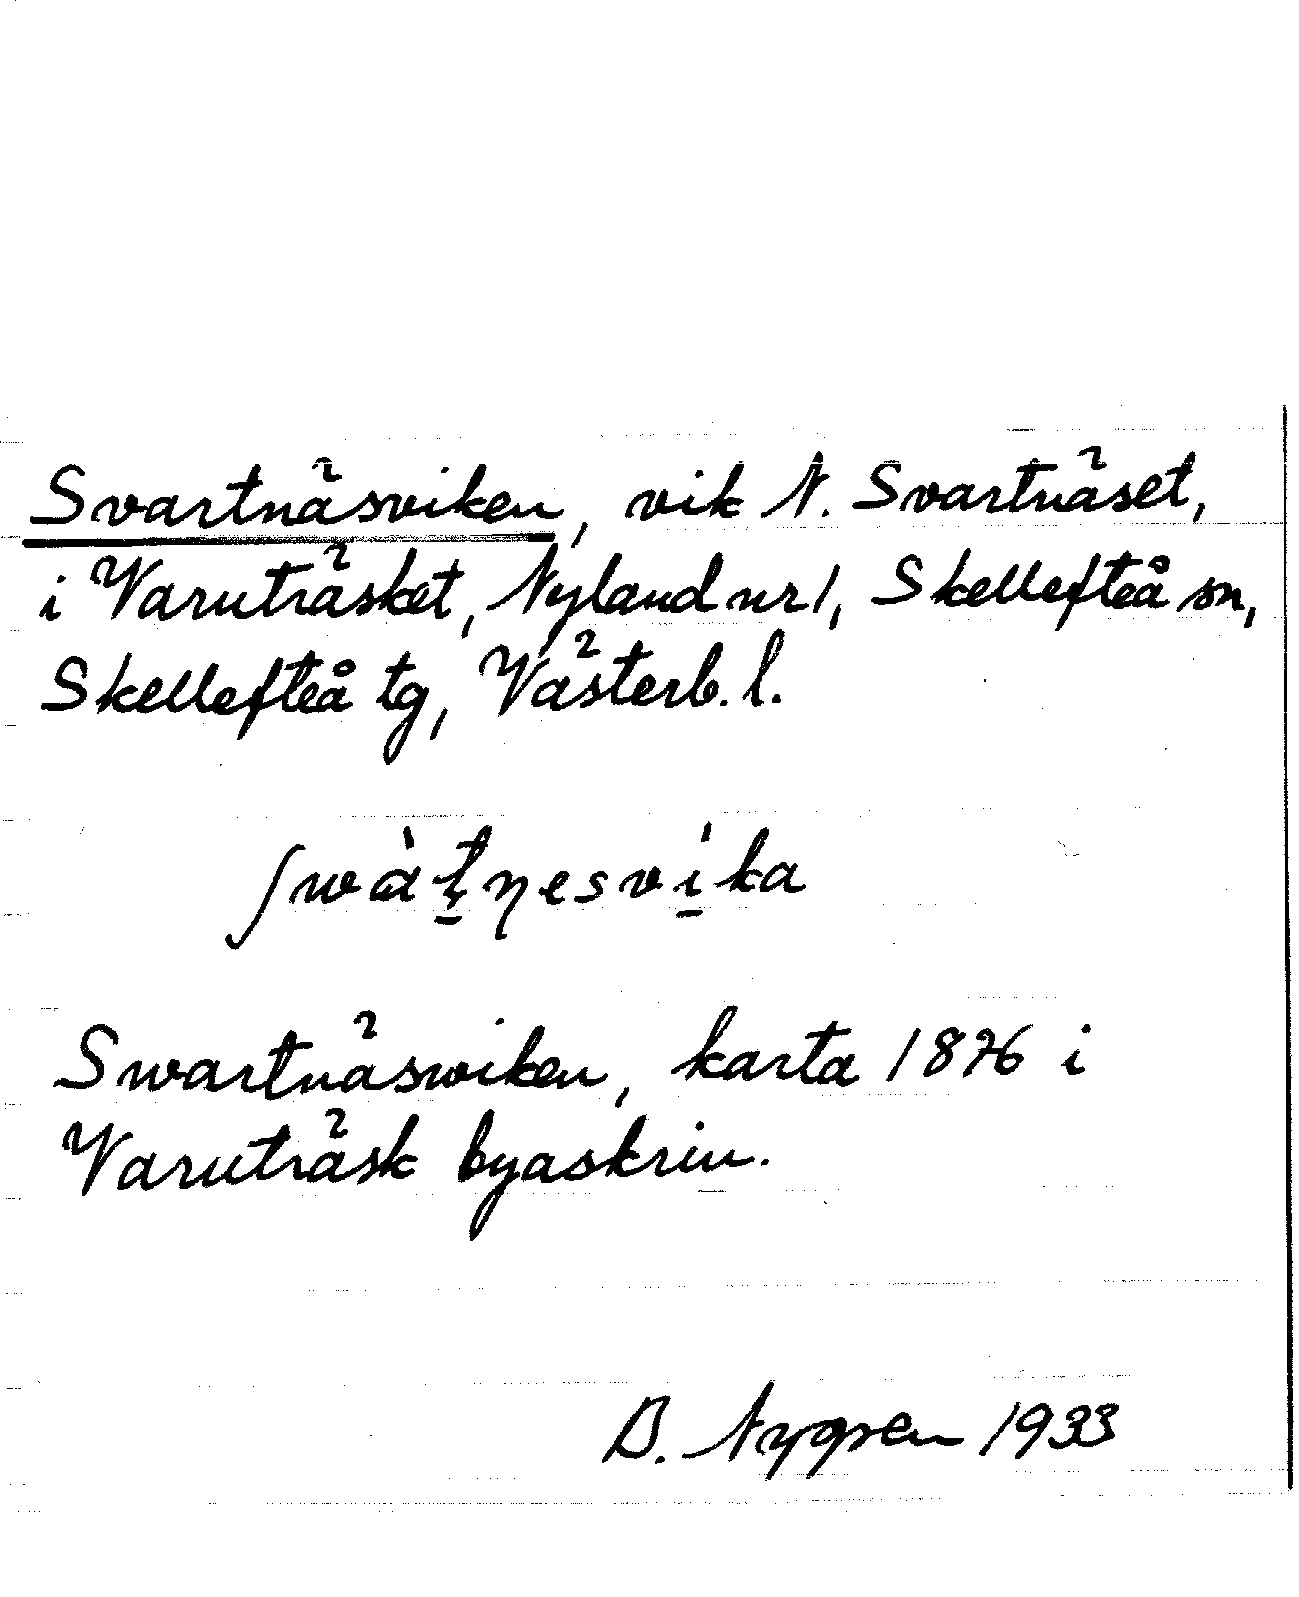 Svartnäsviken, vik N. Svartnäset,
i Varuträsket, Nyland nr 1, Skellefteå sn,
Skellefteå tg, Västerb. l.
ʃwàt̠ņesvì̠ka
Swartnäswiken, karta 1876 i
Varuträsk byaskrin.
B. Nygren 1933